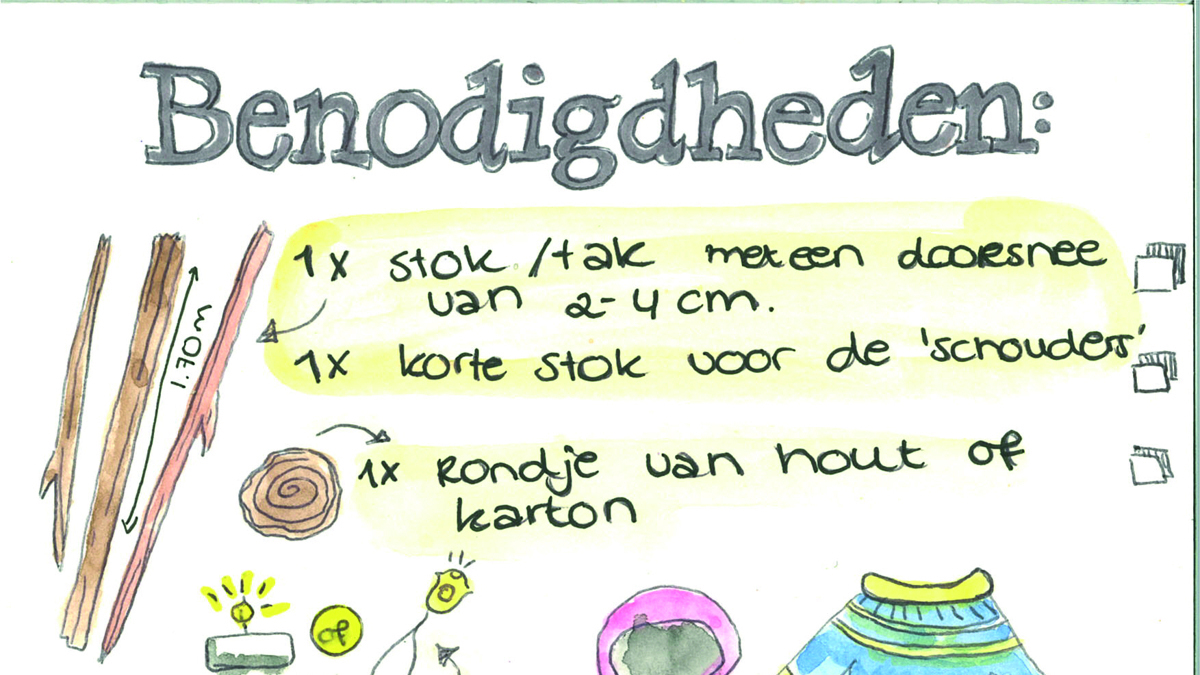 Benodigdheden:
1x stok/tak met een doorsnee
van 2-4 cm.
1.70m
1x korte stok voor de 'schouders'
1x Rondje van hout of
karton
of